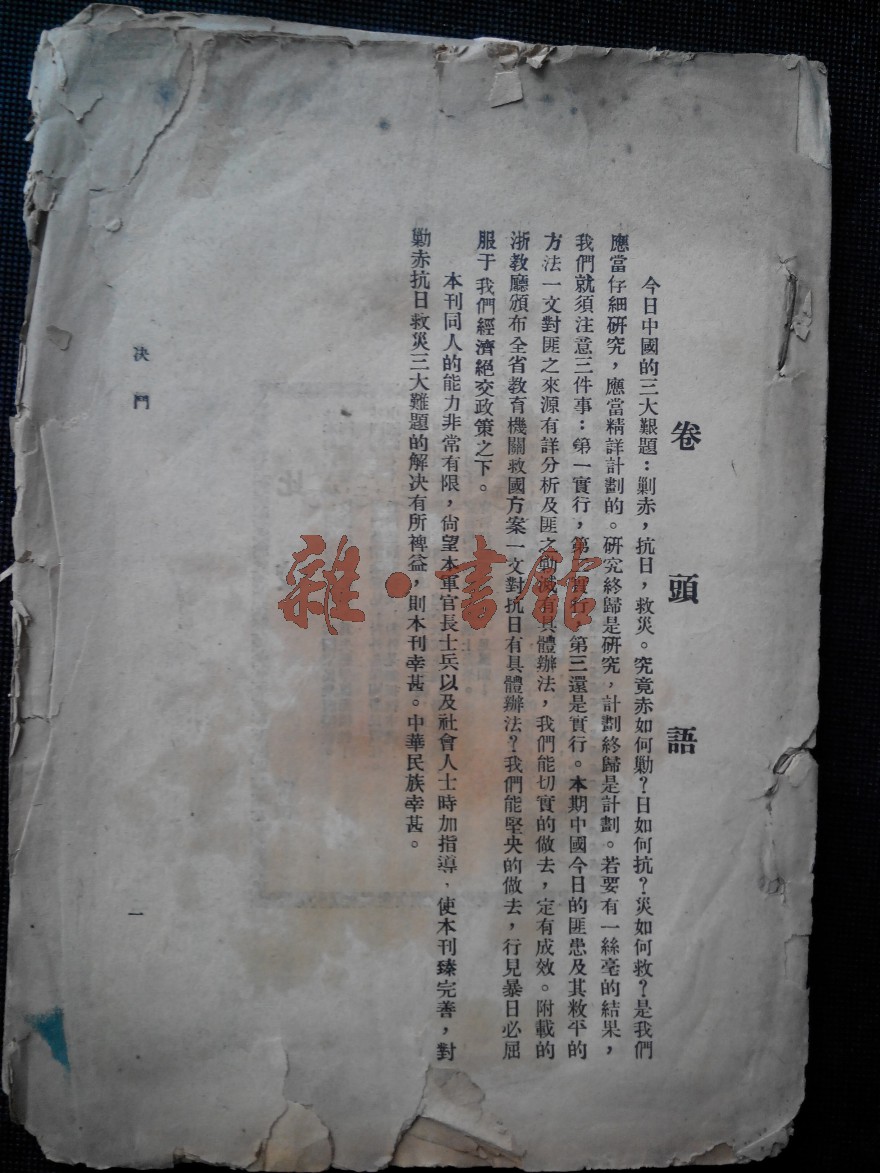 卷頭語
今日中國的三大艱題：剿赤，抗日，救災。究竟赤如何勦？日如何抗？災如何救？是我們
應當仔細研究，應當精詳計劃的。研究終歸是研究，計劃終歸是計劃。若要有一絲毫的結果，
我們就須注意三件事：第一實行，第二實行，第三還是實行。本期中國今日的匪患及其敉平的
方法一文對匪之來源有詳分析及匪之勦滅有具體辦法，我們能切實的做去，定有成效。附載的
浙教廳頒布全省教育機關救國方案一文對抗日有具體辦法？我們能堅央的做去，行見暴日必屈
服于我們經濟絕交政策之下。
本刊同人的能力非常有限，尙望本軍官長士兵以及社會人士時加指導，使本刊臻完善，對
勦赤抗日救災三大難題的解決有所裨益，則本刊幸甚。中華民族幸甚。
決鬥
一
雜·書館